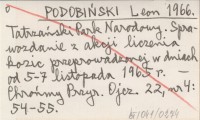 PODOBIŃSKI Leon 1966.
Tatrzański Park Narodowy. Spra-
wozdanie z akcji liczenia
kozic przeprowadzonej w dniach
od 5-7 listopada 1965 r. —
Chrońmy Przyr. Ojcz. 22, nr 4:
54-55.